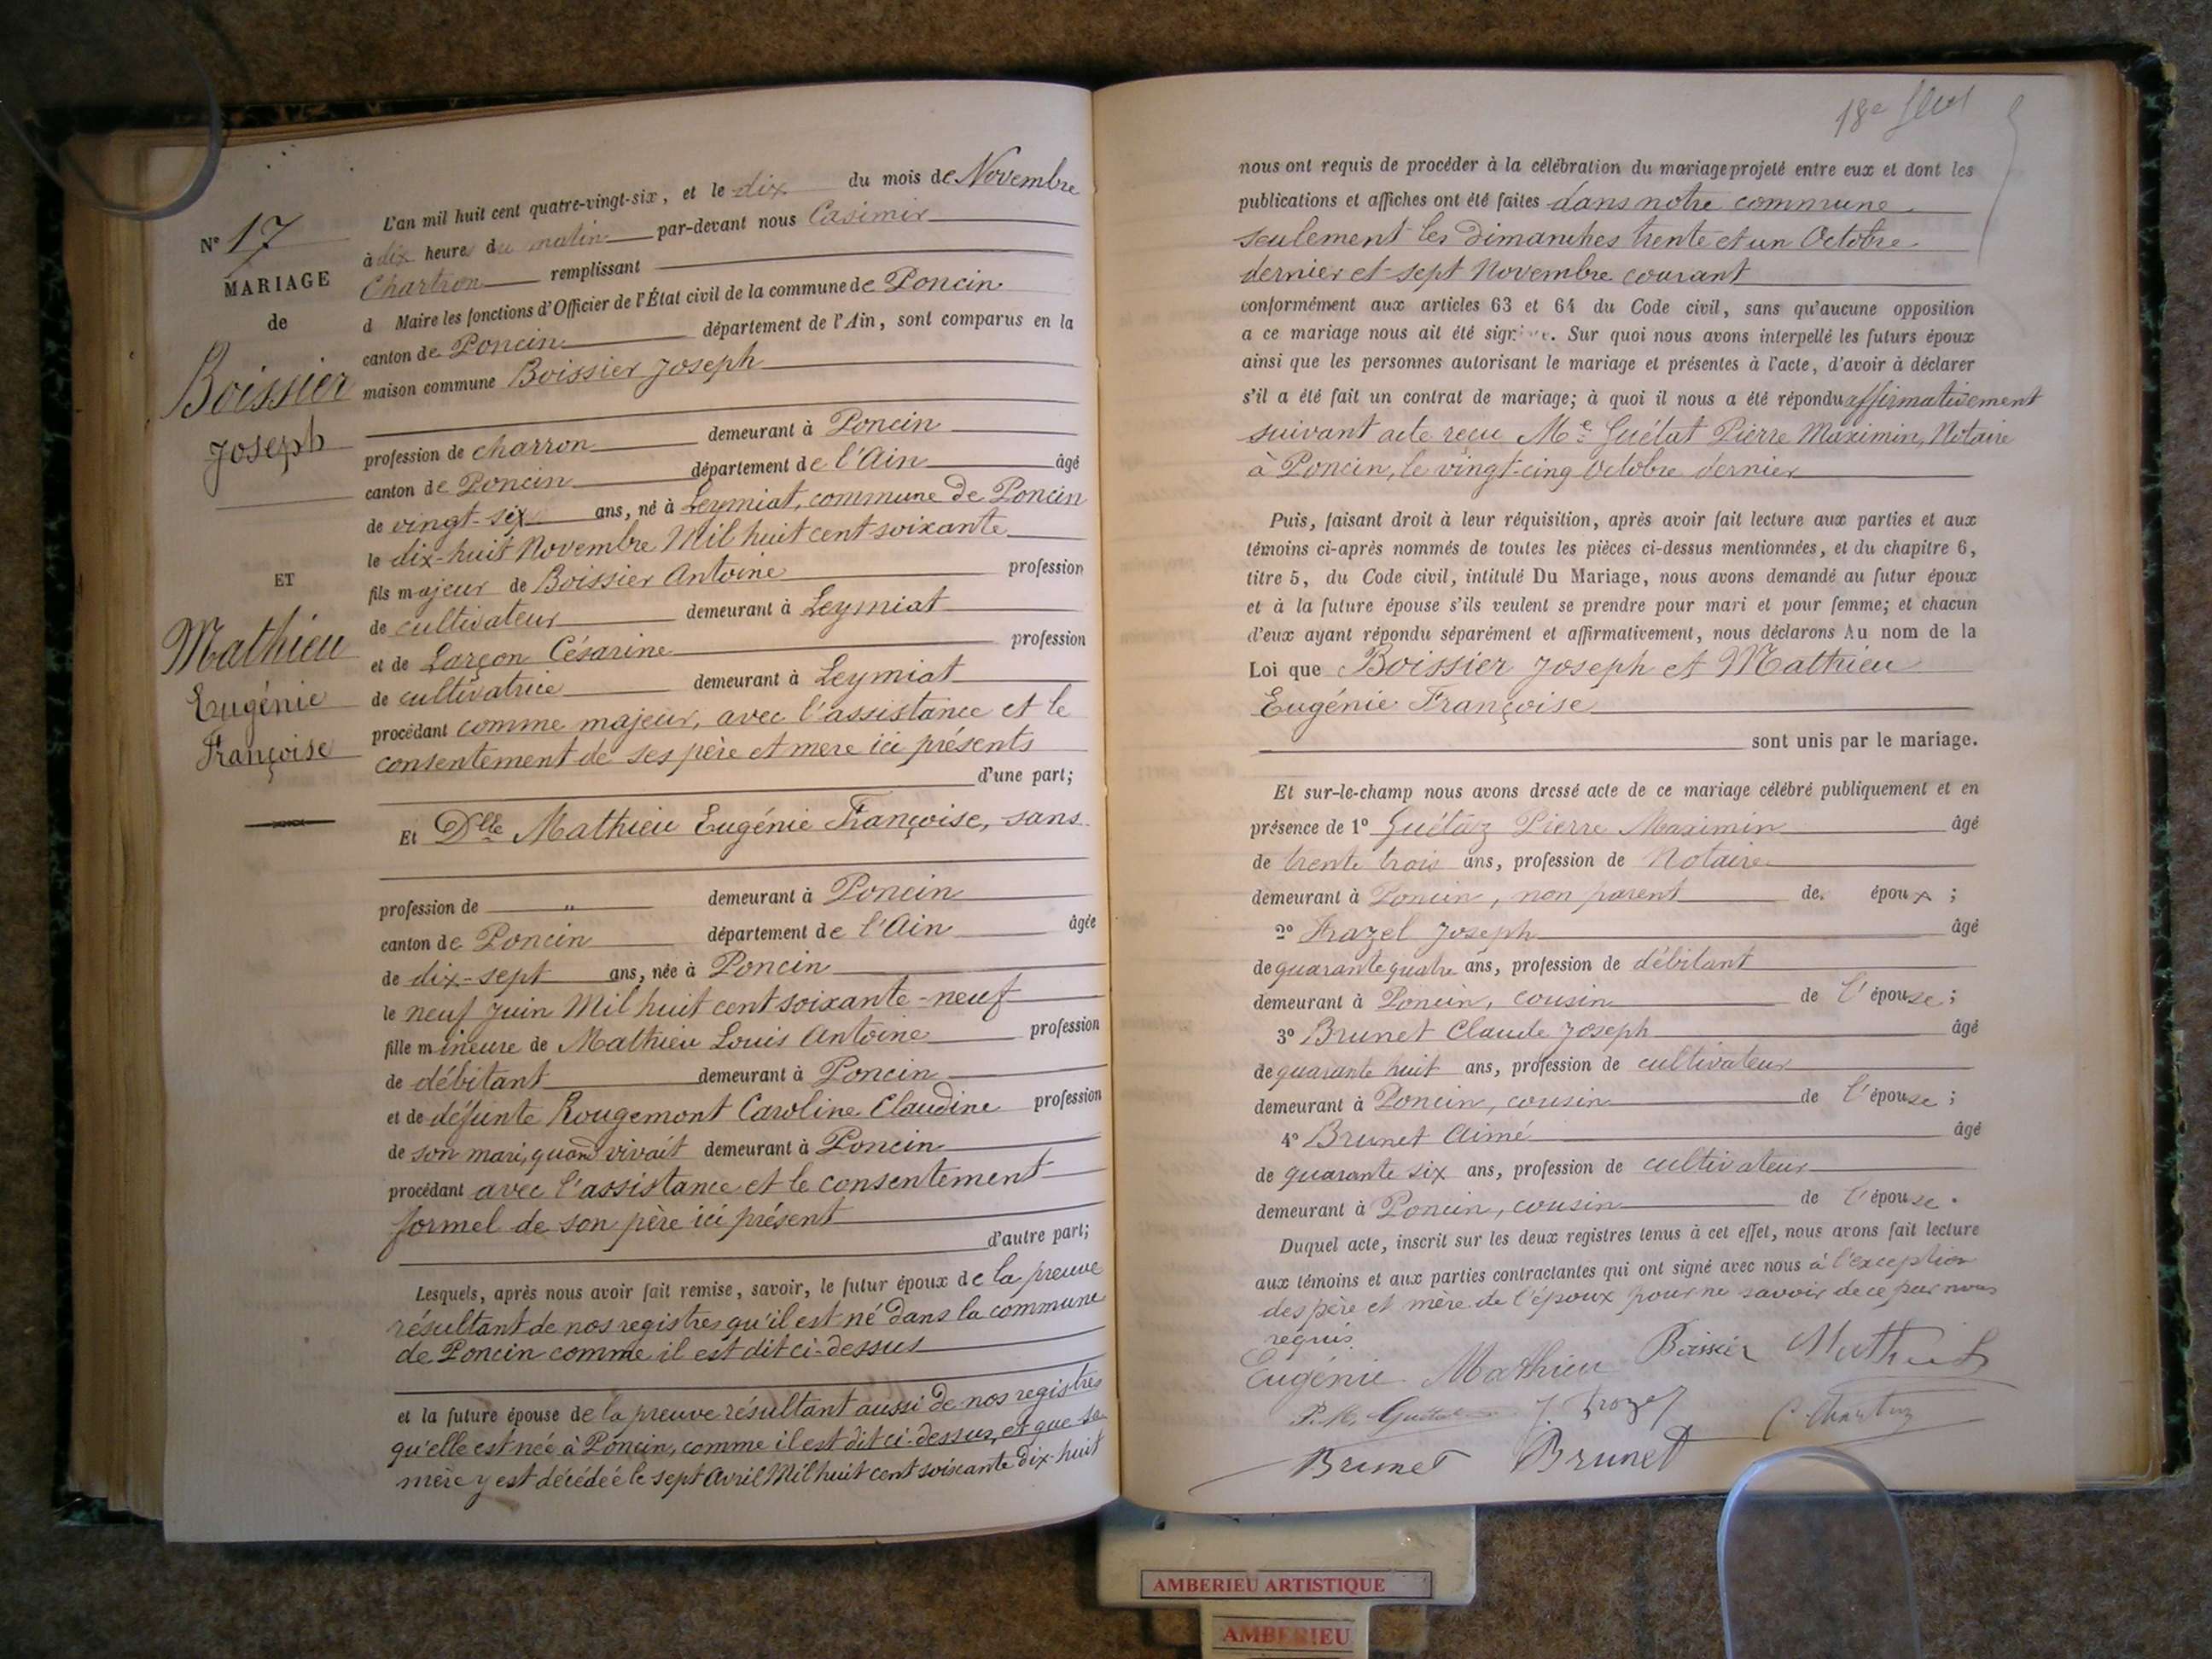 N° 17
MARIAGE
de
Boissier
Joseph
ET
Mathieu
Eugénie
Françoise
L'an mil huit cent quatre-vingt-six, et le dix du mois de Novembre
à dix heures du matin par-devant nous Casimir
Chartron remplissant
d Maire les fonctions d'Officier de l'État civil de la commune de Poncin
canton de Poncin département de l'Ain, sont comparus en la
maison commune Boissier Joseph
profession de charron demeurant à Poncin
canton de Poncin département de l'Ain âgé
de vingt-six ans, né à Leymiat, commune de Poncin
le dix-huit Novembre Mil huit cent soixante
fils majeur de Boissier Antoine profession
de cultivateur demeurant à Leymiat
et de Larçon Césarine profession
de cultivatrice demeurant à Leymiat
procédant comme majeur, avec l'assistance et le
consentement de ses père et mère ici présents
d'une part;
Et Dlle Mathieu Eugénie Françoise, sans
profession de " demeurant à Poncin
canton de Poncin département de l'Ain âgée
de dix-sept ans, née à Poncin
le neuf Juin Mil huit cent soixante-neuf
fille mineure de Mathieu Louis Antoine profession
de débitant demeurant à Poncin
et de défunte Rougemont Caroline Claudine profession
de son mari, quand vivait demeurant à Poncin
procédant avec l'assistance et le consentement
formel de son père ici présent
d'autre part;
Lesquels, après nous avoir fait remise, savoir, le futur époux de la preuve
résultant de nos registres qu'il est né dans la commune
de Poncin comme il est dit ci-dessus
et la future épouse de la preuve résultant aussi de nos registres
qu'elle est née à Poncin, comme il est dit ci-dessus, et que sa
mère y est décédée le sept Avril Mil huit cent soixante dix-huit
18e
nous ont requis de procéder à la célébration du mariage projeté entre eux et dont les
publications et affiches ont été faites dans notre commune
seulement les Dimanches trente et un Octobre
dernier et sept Novembre courant
conformément aux articles 63 et 64 du Code civil, sans qu'aucune opposition
a ce mariage nous ait été signifiée. Sur quoi nous avons interpellé les futurs époux
ainsi que les personnes autorisant le mariage et présentes à l'acte, d'avoir à déclarer
s'il a été fait un contrat de mariage; à quoi il nous a été répondu affirmativement
suivant acte reçu Me Guétat Pierre Maximin, Notaire
à Poncin, le vingt-cinq Octobre dernier
Puis, faisant droit à leur réquisition, après avoir fait lecture aux parties et aux
témoins ci-après nommés de toutes les pièces ci-dessus mentionnées, et du chapitre 6,
titre 5, du Code civil, intitulé Du Mariage, nous avons demandé au futur époux
et à la future épouse s'ils veulent se prendre pour mari et pour femme; et chacun
d'eux ayant répondu séparément et affirmativement, nous déclarons Au nom de la
Loi que Boissier Joseph et Mathieu
Eugénie Françoise
sont unis par le mariage.
Et sur-le-champ nous avons dressé acte de ce mariage célébré publiquement et en
présence de 1° Guétaz Pierre Maximin âgé
de trente trois ans, profession de Notaire
demeurant à Poncin, non parent des époux ;
2° Joseph âgé
de quarante quatre ans, profession de débitant
demeurant à Poncin, cousin de l'épouse ;
3° Brunet Claude Joseph âgé
de quarante huit ans, profession de cultivateur
demeurant à Poncin, cousin de l'épouse ;
4° Brunet Aimé âgé
de quarante six ans, profession de cultivateur
demeurant à Poncin, cousin de l'épouse.
Duquel acte, inscrit sur les deux registres tenus à cet effet, nous avons fait lecture
aux témoins et aux parties contractantes qui ont signé avec nous à l'exception
des père et mère de l'époux pour ne savoir de ce par nous
requis.
Eugénie Mathieu Boissier Mathieu
P. M. Guétat J.
Brunet Brunet
AMBERIEU ARTISTIQUE
AMBERIEU